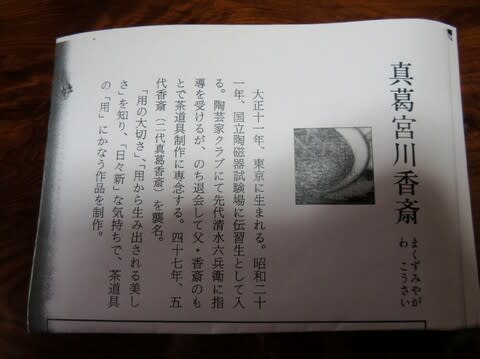 真葛宮川香斎
まくずみやが
わ　こうさい
大正十一年、東京に生まれる。昭和二十
一年、国立陶磁器試験場に伝習生として入
る。陶芸家クラブにて先代清水六兵衛に指
導を受けるが、のち退会して父・香斎のも
とで茶道具制作に専念する。四十七年、五
代香斎（二代真葛香斎）を襲名。
「用の大切さ」、「用から生み出される美し
さ」を知り、「日々新」な気持ちで、茶道具
の「用」にかなう作品を制作。